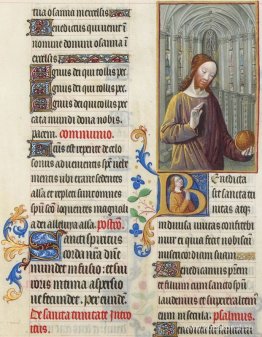 tria osanna in excelsis.
Benedictus qui venit i
nomine domini osanna i
excelsis.
Agnus dei qui tollis pec
Agnus dei qui tollis pec.
Agnus dei qui tollis pec
cata mundi dona nobis
pacem. communio.
Factus est repente de celo
sonus advenientis spūs vehe
mentis ubi erant sedentes
alla et repleti sunt omnes
spū scō loquentes magnali
a dei alleluya alla. postco.
Sancti spiritus
corda nrā mun
mundet infusio: et sui
roris intima aspersio
ne fecundet. per eiusdē.
De sancta trinitate Intro
itus.
Benedicta
sit sancta tri
nitas atq;
indivisa unitas confitebi
mur ei quia fecit nobiscū
misericordiam suam
Benedicamus patrē
et filium cum sancto spū
laudemus et superexaltem
eum in secula. psalmus.
Benedicta sit sancta tri